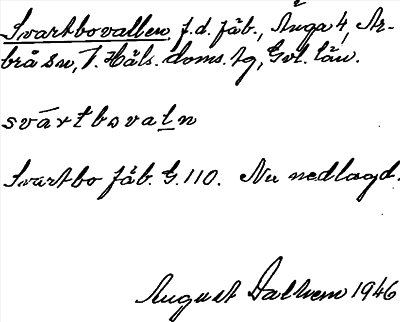 Svartbovallen f.d. fäb., Änga 4, Ar-
brå sn, V. Häls. doms. tg, Gvl. län.
svártbovaḻn
Svartbo fäb. G.110. Nu nedlagd.
August Dalhem 1946